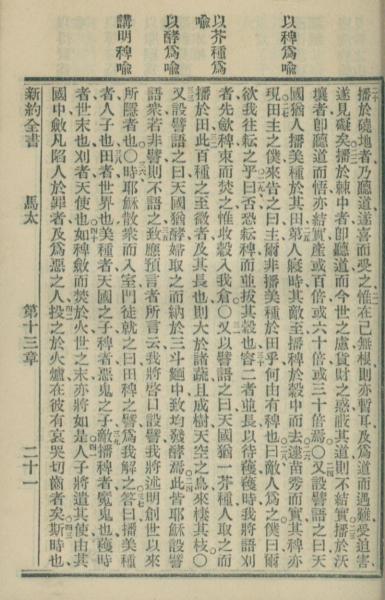 以稗爲喻
以芥種爲
喻
以酵爲喻
講明稗喻
播於磽地者乃聽道遂喜而受之惟在己無根則亦暫耳及爲道而遇難受迫害
遂見礙矣播於棘中者卽聽道而今世之慮貨財之惑蔽其道則不結實播於沃
壤者卽聽道而悟亦結實產或百倍或六十倍或三十倍焉〇又設譬語之曰天
國猶人播美種於其田第人寢時其敵至播稗於穀中而去逮苗秀而實其稗亦
現田主之僕來告之曰主爾非播美種於田乎何由有稗也曰敵人爲之僕曰爾
欲我往耘之乎曰否恐耘稗而並拔其穀也容二者並長以待穫穫時我將語刈
者先斂稗束而焚之惟收穀入我倉〇又以譬語之曰天國猶一芥種人取之而
播於田此百種之至微者及其長也則大於諸蔬且成樹天空之鳥來棲其枝〇
又設譬語之曰天國猶酵婦取之而納於三斗麵中致均發酵焉此皆耶穌設譬
語衆若非譬則不語之致應預言者所言云我將啓口設譬我將述明創世以來
所隱者也〇時耶穌散衆而入室門徒就之曰田稗之譬爲我解之答曰播美種
者人子也田者世界也美種者天國之子稗者惡鬼之子敵播稗者魔鬼也穫時
者世末也刈者天使也如稗斂而焚於火世之末亦將如是人子將遣其使由其
國中斂凡陷人於罪者及爲惡之人投之於火爐在彼有哀哭切齒者矣斯時也
新約全書 馬太 第十三章 二十一